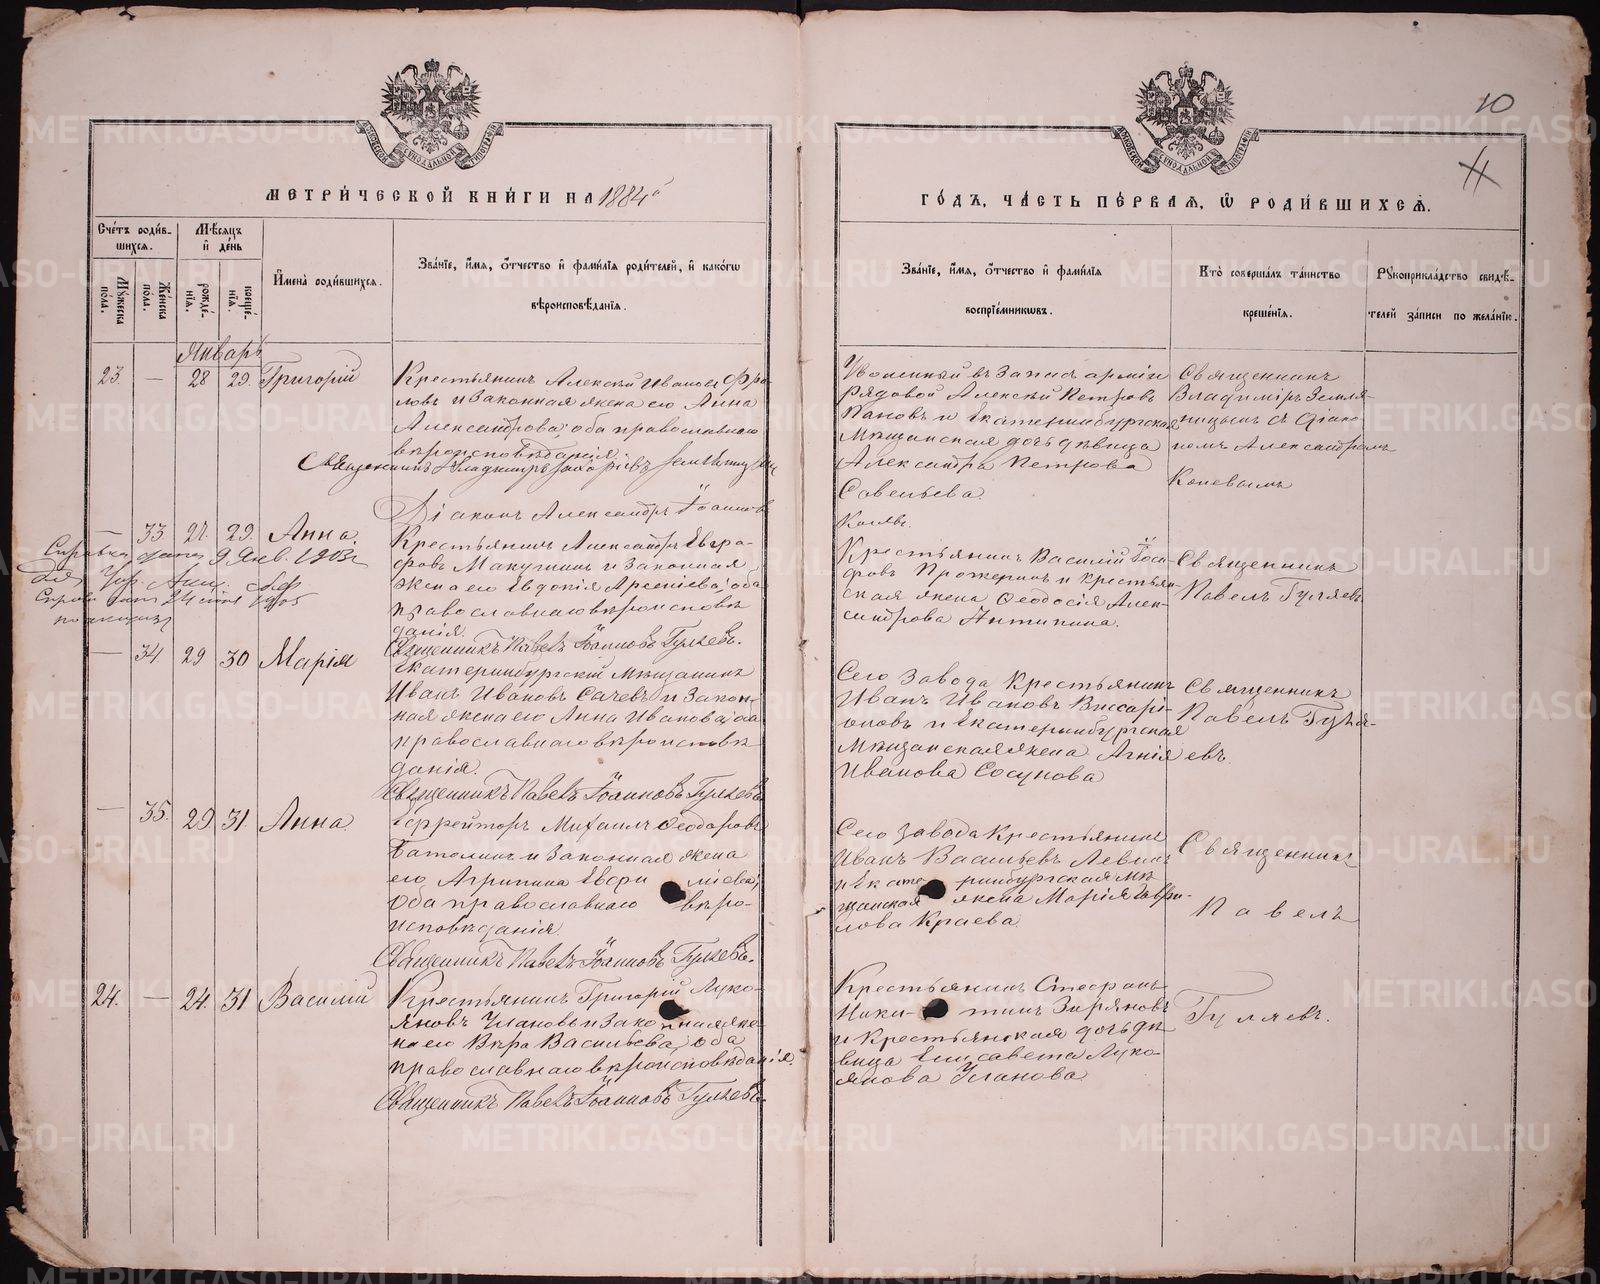 10
11
МОСКОВСКОЙ СѴНОДАЛЬНОЙ ТИПОГРАФІИ
МОСКОВСКОЙ СѴНОДАЛЬНОЙ ТИПОГРАФІИ
МЕТРИ́ЧЕСКОЙ КНИ́ГИ НА 1884й
ГО́ДЪ, ЧА́СТЬ ПЕ́РВАЯ, Ѿ РОДИ́ВШИХСѦ.
Сче́тъ роди́в-
шихсѧ.
Мѣ́сѧцъ
и҆ де́нь
Мꙋ́жеска пола.
Же́нска пола.
рожде́-
нїѧ.
креще́-
нїѧ.
И҆мена̀ роди́вшихсѧ.
Зва́нїе, и҆́мѧ, ѻ҆́тчество и҆ фами́лїѧ роди́телей, и҆ како́гѡ
вѣроисповѣ́данїѧ.
Зва́нїе, и҆́мѧ, ѻ҆́тчество и҆ фами́лїѧ
воспрїе́мникѡвъ.
Кто̀ соверша́лъ та́инство
креще́нїѧ.
Рꙋкоприкла́дство свидѣ́-
телей за́писи по жела́нїю.
Январь
23. — 28 29. Григорій
Крестьянинъ Алексѣй Ивановъ Фро-
ловъ и законная жена его Анна
Александрова, оба православнаго
вѣроисповѣданія.
Священникъ Владимиръ Земляницынъ
Діаконъ Александръ Іоанновъ
Коневъ.
Уволенный въ запасъ арміи
рядовой Алексѣй Петровъ
Пановъ и Екатеринбургская
мѣщанская дочь дѣвица
Александра Петрова
Савельева.
Священникъ
Владиміръ Земля-
ницынъ съ Діако-
номъ Александромъ
Коневымъ
— 33. 27. 29. Анна.
Справка дана 9 Янв. 1903 г
Крестьянинъ Александръ Евгра-
фовъ Макушинъ и законная
жена его Евдокія Арсеніева, оба
православнаго вѣроисповѣ
данія.
Священникъ Павелъ Іоанновъ Гуляевъ.
Крестьянинъ Василій Іоси-
фовъ Прожеринъ и крестьян-
ская жена Ѳеодосія Алек-
сандрова Антипина.
Священникъ
Павелъ Гуляевъ
— 34. 29 30 Марія
Екатеринбургскій мѣщанинъ
Иванъ Ивановъ Сачевъ и закон-
ная жена его Анна Иванова, оба
православнаго вѣроисповѣ
данія.
Священникъ Павелъ Іоанновъ Гуляевъ
Сего завода крестьянинъ
Иванъ Ивановъ Виссарі-
оновъ и Екатеринбургская
мѣщанская жена Агнія
Иванова Сосунова
Священникъ
Павелъ Гуля-
евъ.
— 35. 29 31. Анна.
Ефрейторъ Михаилъ Ѳеодоровъ
Батолинъ и законная жена
его Агрипина Евфи міева,
оба православнаго вѣро-
исповѣданія
Священникъ Павелъ Іоанновъ Гуляевъ.
Сего завода крестьянинъ
Иванъ Васильевъ Левинъ
и Екате ринбургская мѣ
щанская жена Марія Гаври-
лова Краева.
Священникъ
Павелъ
24. — 24. 31 Василій
Крестьянинъ Григорій Луко-
яновъ Улановъ и зако нная же-
на его Вѣра Васильева, оба
православнаго вѣроисповѣданія.
Священникъ Павелъ Іоанновъ Гуляевъ.
Крестьянинъ Стефанъ
Ники- тинъ Зыряновъ
и крестьянская дочь дѣ
вица Елисавета Луко-
янова Уланова.
Гуляевъ.